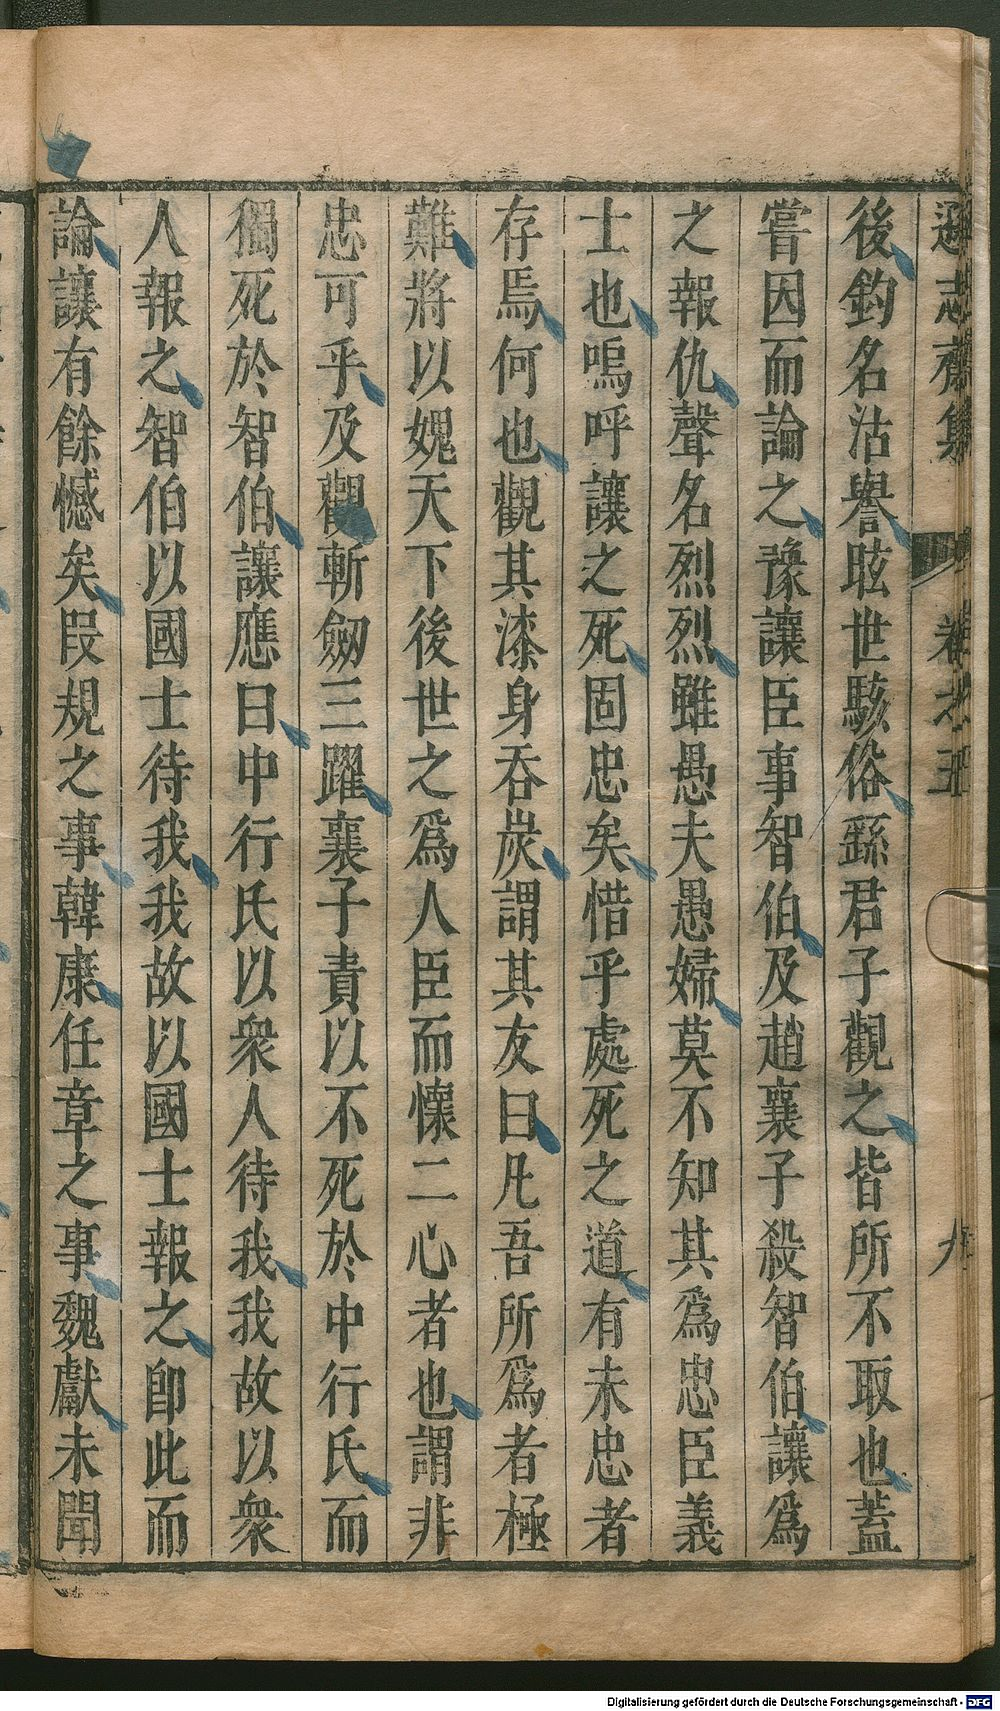 遜志齋集 卷之五 九
後鈞名沽譽眩世駭俗繇君子觀之皆所不取也蓋
嘗因而論之豫讓臣事智伯及趙襄子殺智伯讓爲
之報仇聲名烈烈雖愚夫愚婦莫不知其爲忠臣義
士也嗚呼讓之死固忠矣惜乎處死之道有未忠者
存焉何也觀其漆身吞炭謂其友曰凡吾所爲者極
難將以媿天下後世之爲人臣而懷二心者也謂非
忠可乎及觀斬劒三躍襄子責以不死於中行氏而
獨死於智伯讓應曰中行氏以衆人待我我故以衆
人報之智伯以國士待我我故以國士報之卽此而
論讓有餘憾矣段規之事韓康任章之事魏獻未聞
Digitalisierung gefördert durch die Deutsche Forschungsgemeinschaft - DFG